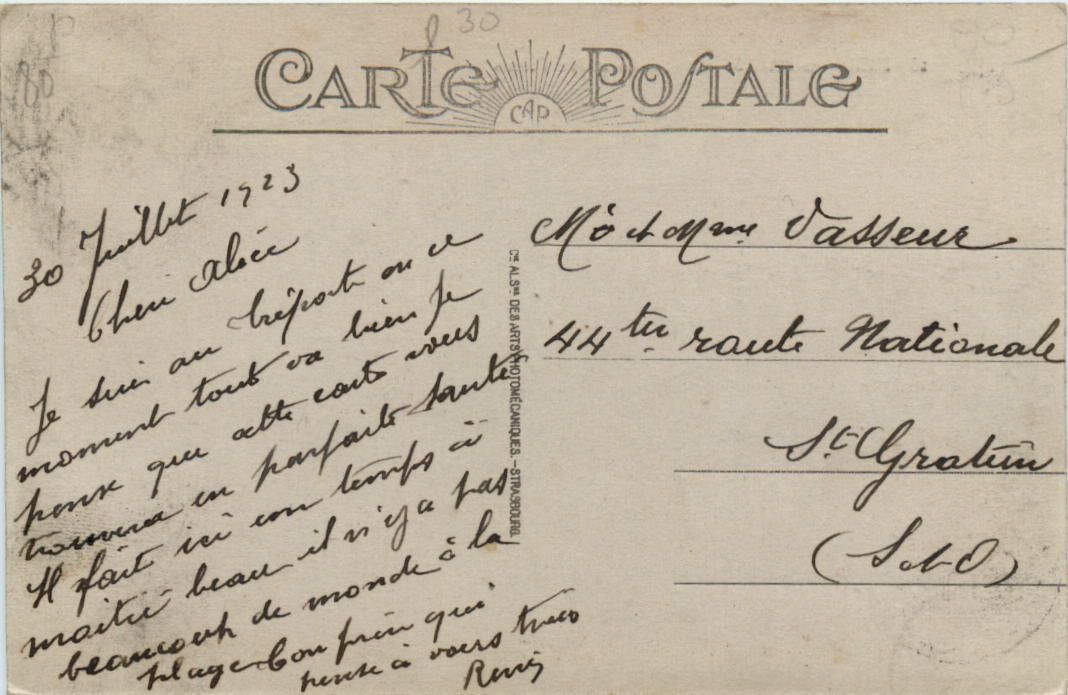 30
CARTE POSTALE
CAP
30 Juillet 1923
Je suis au tréport en ce
moment tout va bien je
pense que cette carte vous
trouvera en parfaite santé
Il fait ici un temps à
moitié beau il n'y a pas
beaucoup de monde à la
plage bon qui
pense à vous tous
Cie ALSne DES ARTS PHOTOMÉCANIQUES. - STRASBOURG.
Mr et Mme Vasseur
44 ter route Nationale
St Gratien
(S et O)